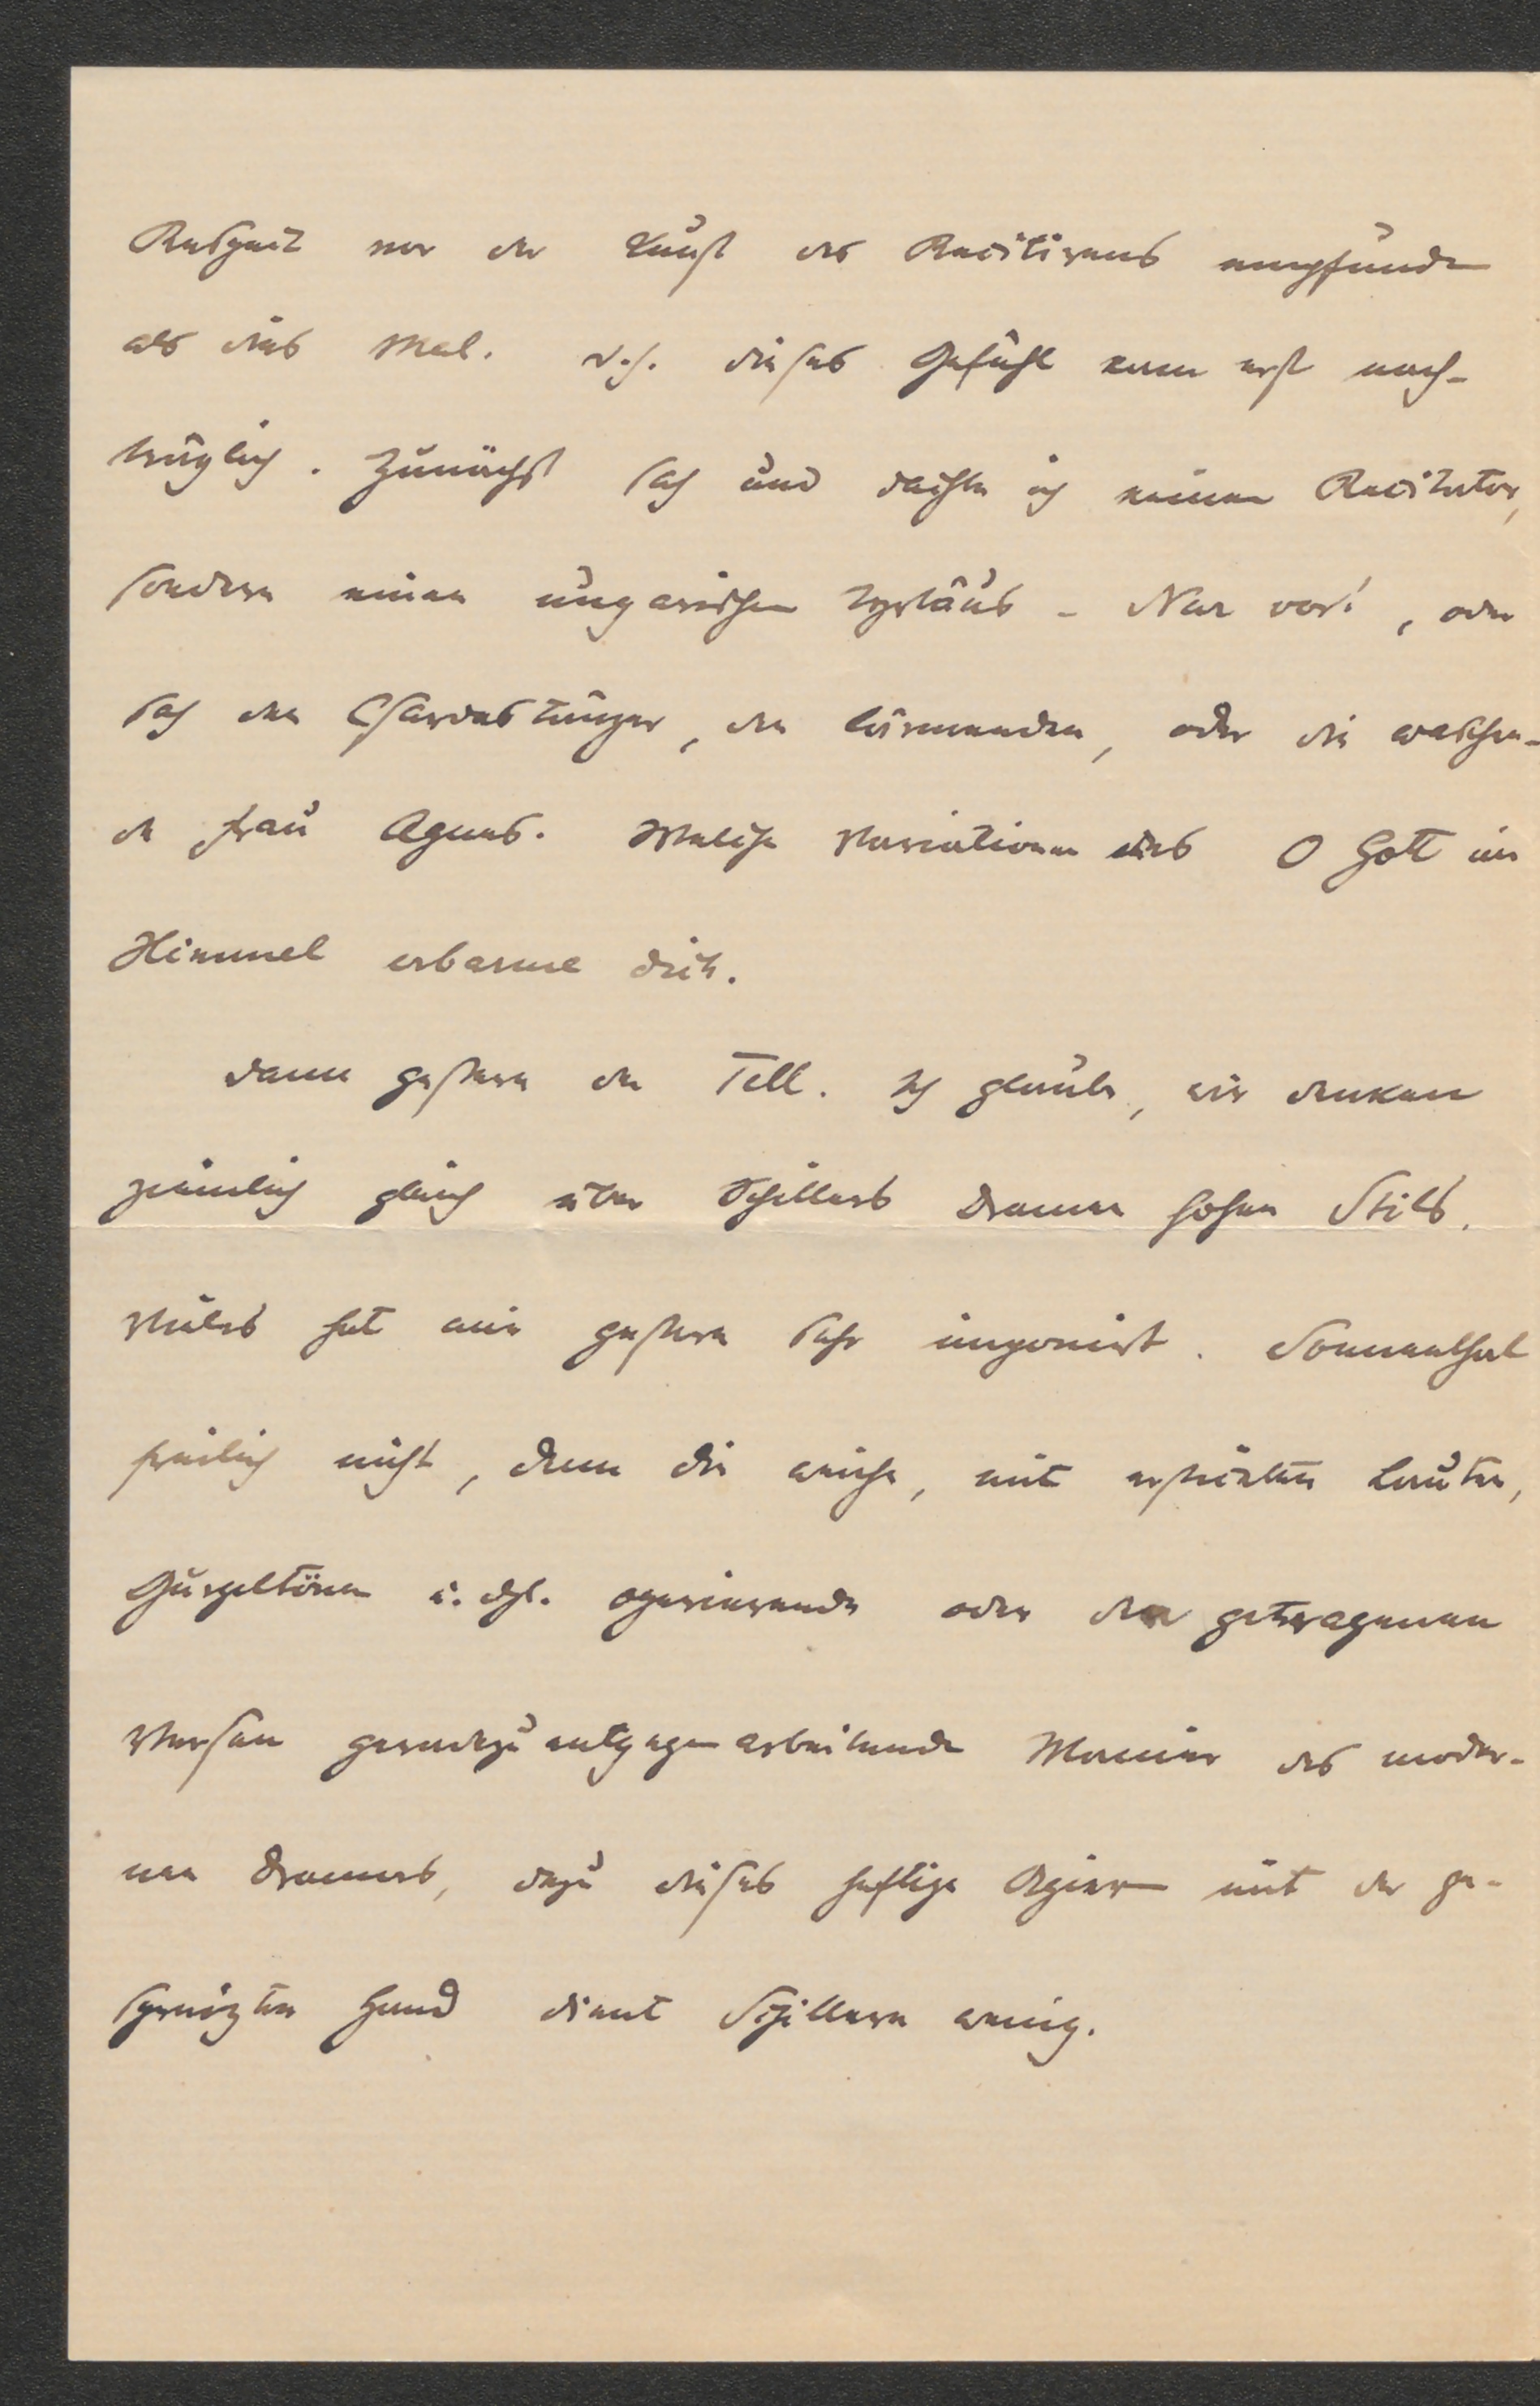 Respect vor der Kunst des Recitirens empfunden
als dies Mal. D. h. dieses Gefühl kam erst nach-
träglich. Zunächst sah und dachte ich keinen Recitator,
sondern einen ungarischen – Nur vor!, oder
sah den Csardastänzer, den lärmenden, oder die waschen-
de Frau Agnes. Welche Variationen des O Gott im
Himmel erbarme dich.
Dann gestern den Tell. Ich glaube, wir denken
ziemlich gleich über Schillers Dramen hohen Stils.
Vieles hat mir gestern sehr imponirt. Sonnenthal
freilich nicht, denn die weiche, mit erstickten Lauten,
Gurgeltönen u. dgl. operierende oder den getragenen
Versen geradezu entgegen arbeitende Manier des moder-
nen Dramas, dazu dieses heftige Agiren mit der ge-
spreizten Hand dient Schillern wenig.